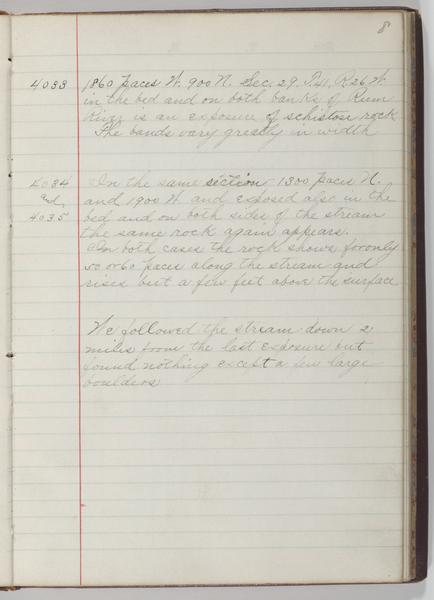 8
4033 1860 paces W. 900 N. Sec. 29. T.41, R.26 W.
in the bed and on both banks of Rum
River is an exposure of schistose rock
The bands vary greatly in width
4034 In the same section 1300 paces N.
and and 1900 W. and exposed also in the
4035 bed and on both sides of the stream
the same rock again appears.
In both cases the rock shows for only
50 or 60 paces along the stream and
rises but a few feet above the surface
We followed the stream down 2
miles from the last exposure but
found nothing except a few large
boulders